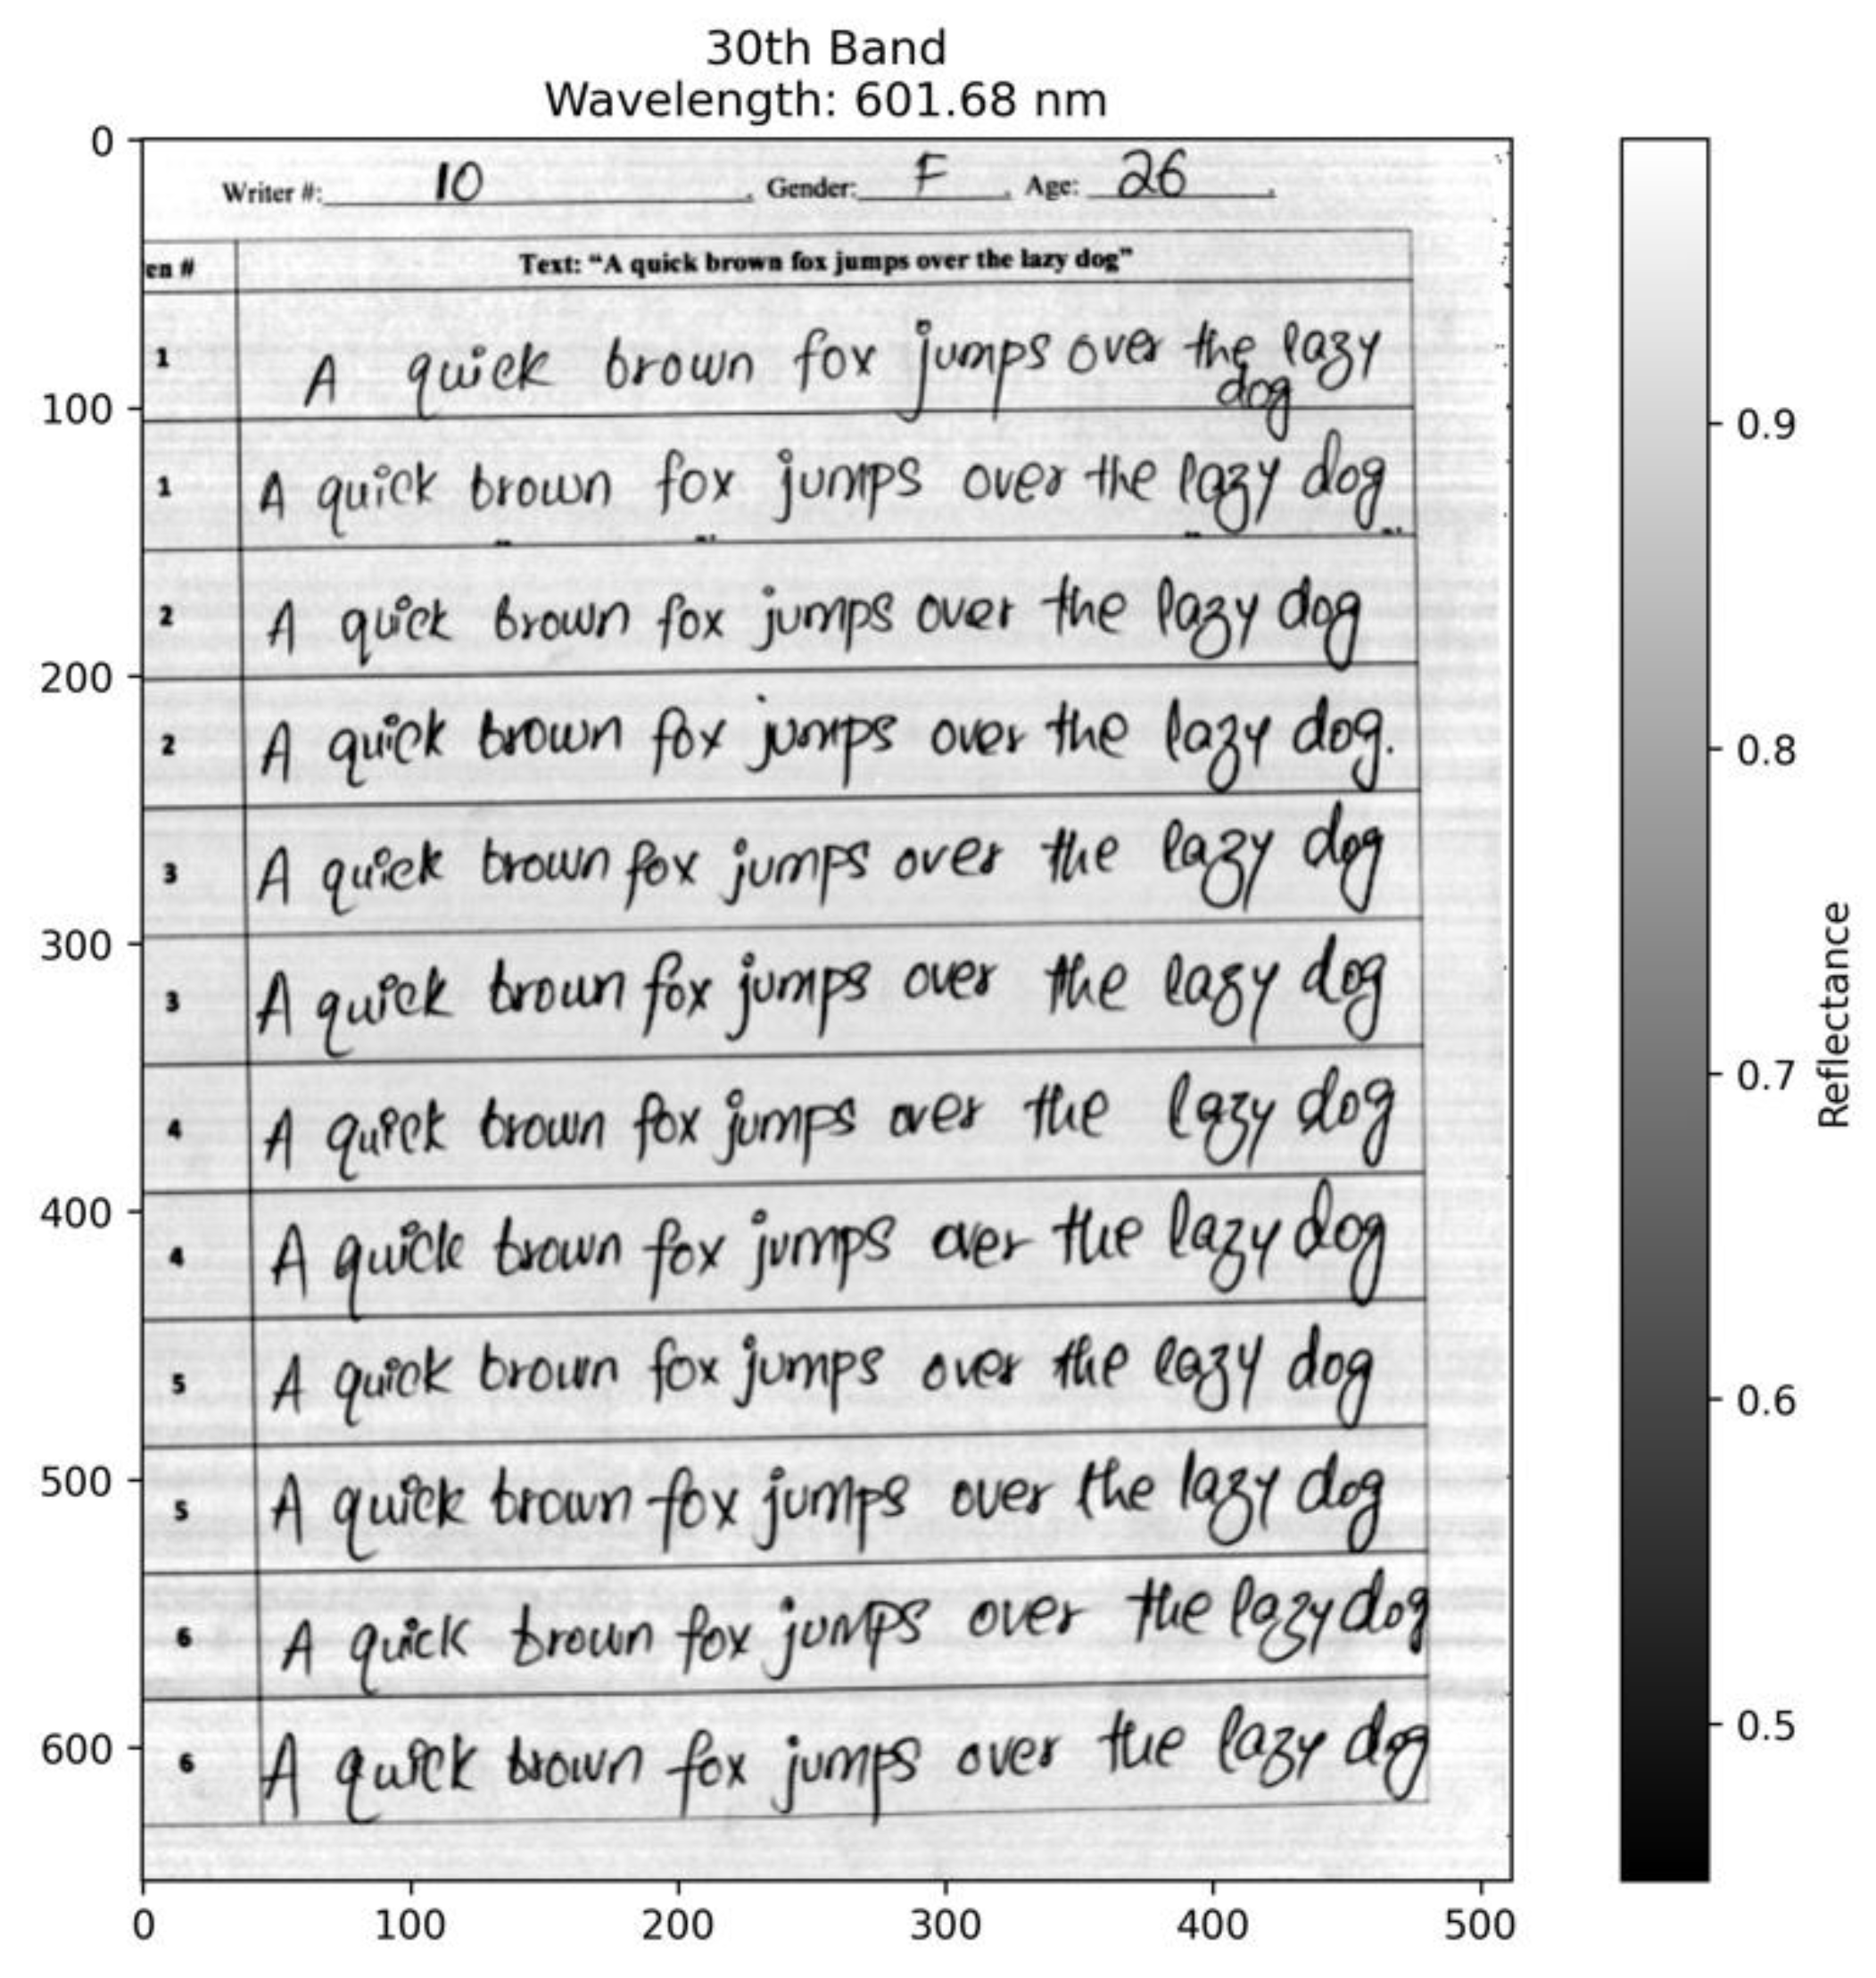 30th Band
Wavelength: 601.68 nm
Writer #: 10 . Gender: F . Age: 26 .
en # Text: “A quick brown fox jumps over the lazy dog”
1 A quick brown fox jumps over the lazy
dog
1 A quick brown fox jumps over the lazy dog
2 A quick brown fox jumps over the lazy dog
2 A quick brown fox jumps over the lazy dog.
3 A quick brown fox jumps over the lazy dog
3 A quick brown fox jumps over the lazy dog
4 A quick brown fox jumps over the lazy dog
4 A quick brown fox jumps over the lazy dog
5 A quick brown fox jumps over the lazy dog
5 A quick brown fox jumps over the lazy dog
6 A quick brown fox jumps over the lazy dog
6 A quick brown fox jumps over the lazy dog
0
100
200
300
400
500
600
0 100 200 300 400 500
0.9
0.8
0.7
0.6
0.5
Reflectance